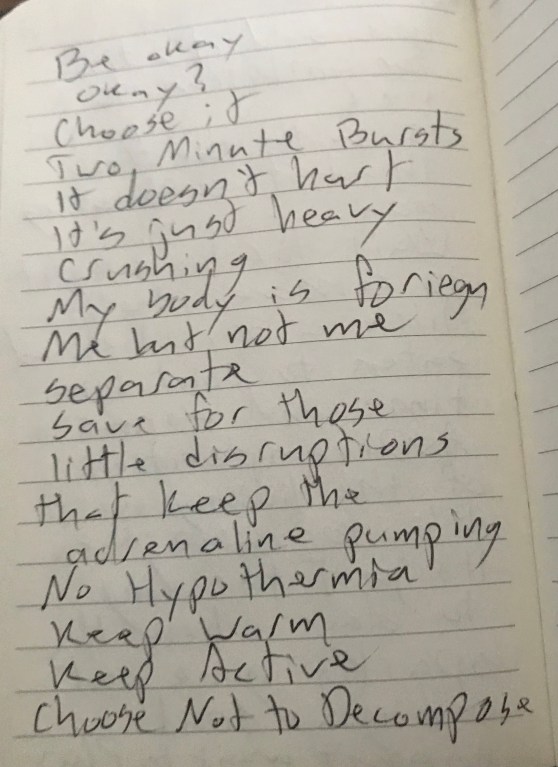 Be okay
okay?
Choose it
Two, Minute Bursts
It doesn't hurt
It's just heavy
Crushing
My body is foriegn
Me but not me
separate
save for those
little disruptions
that keep the
adrenaline pumping
No Hypothermia
Keep Warm
Keep Active
Choose Not to Decompose